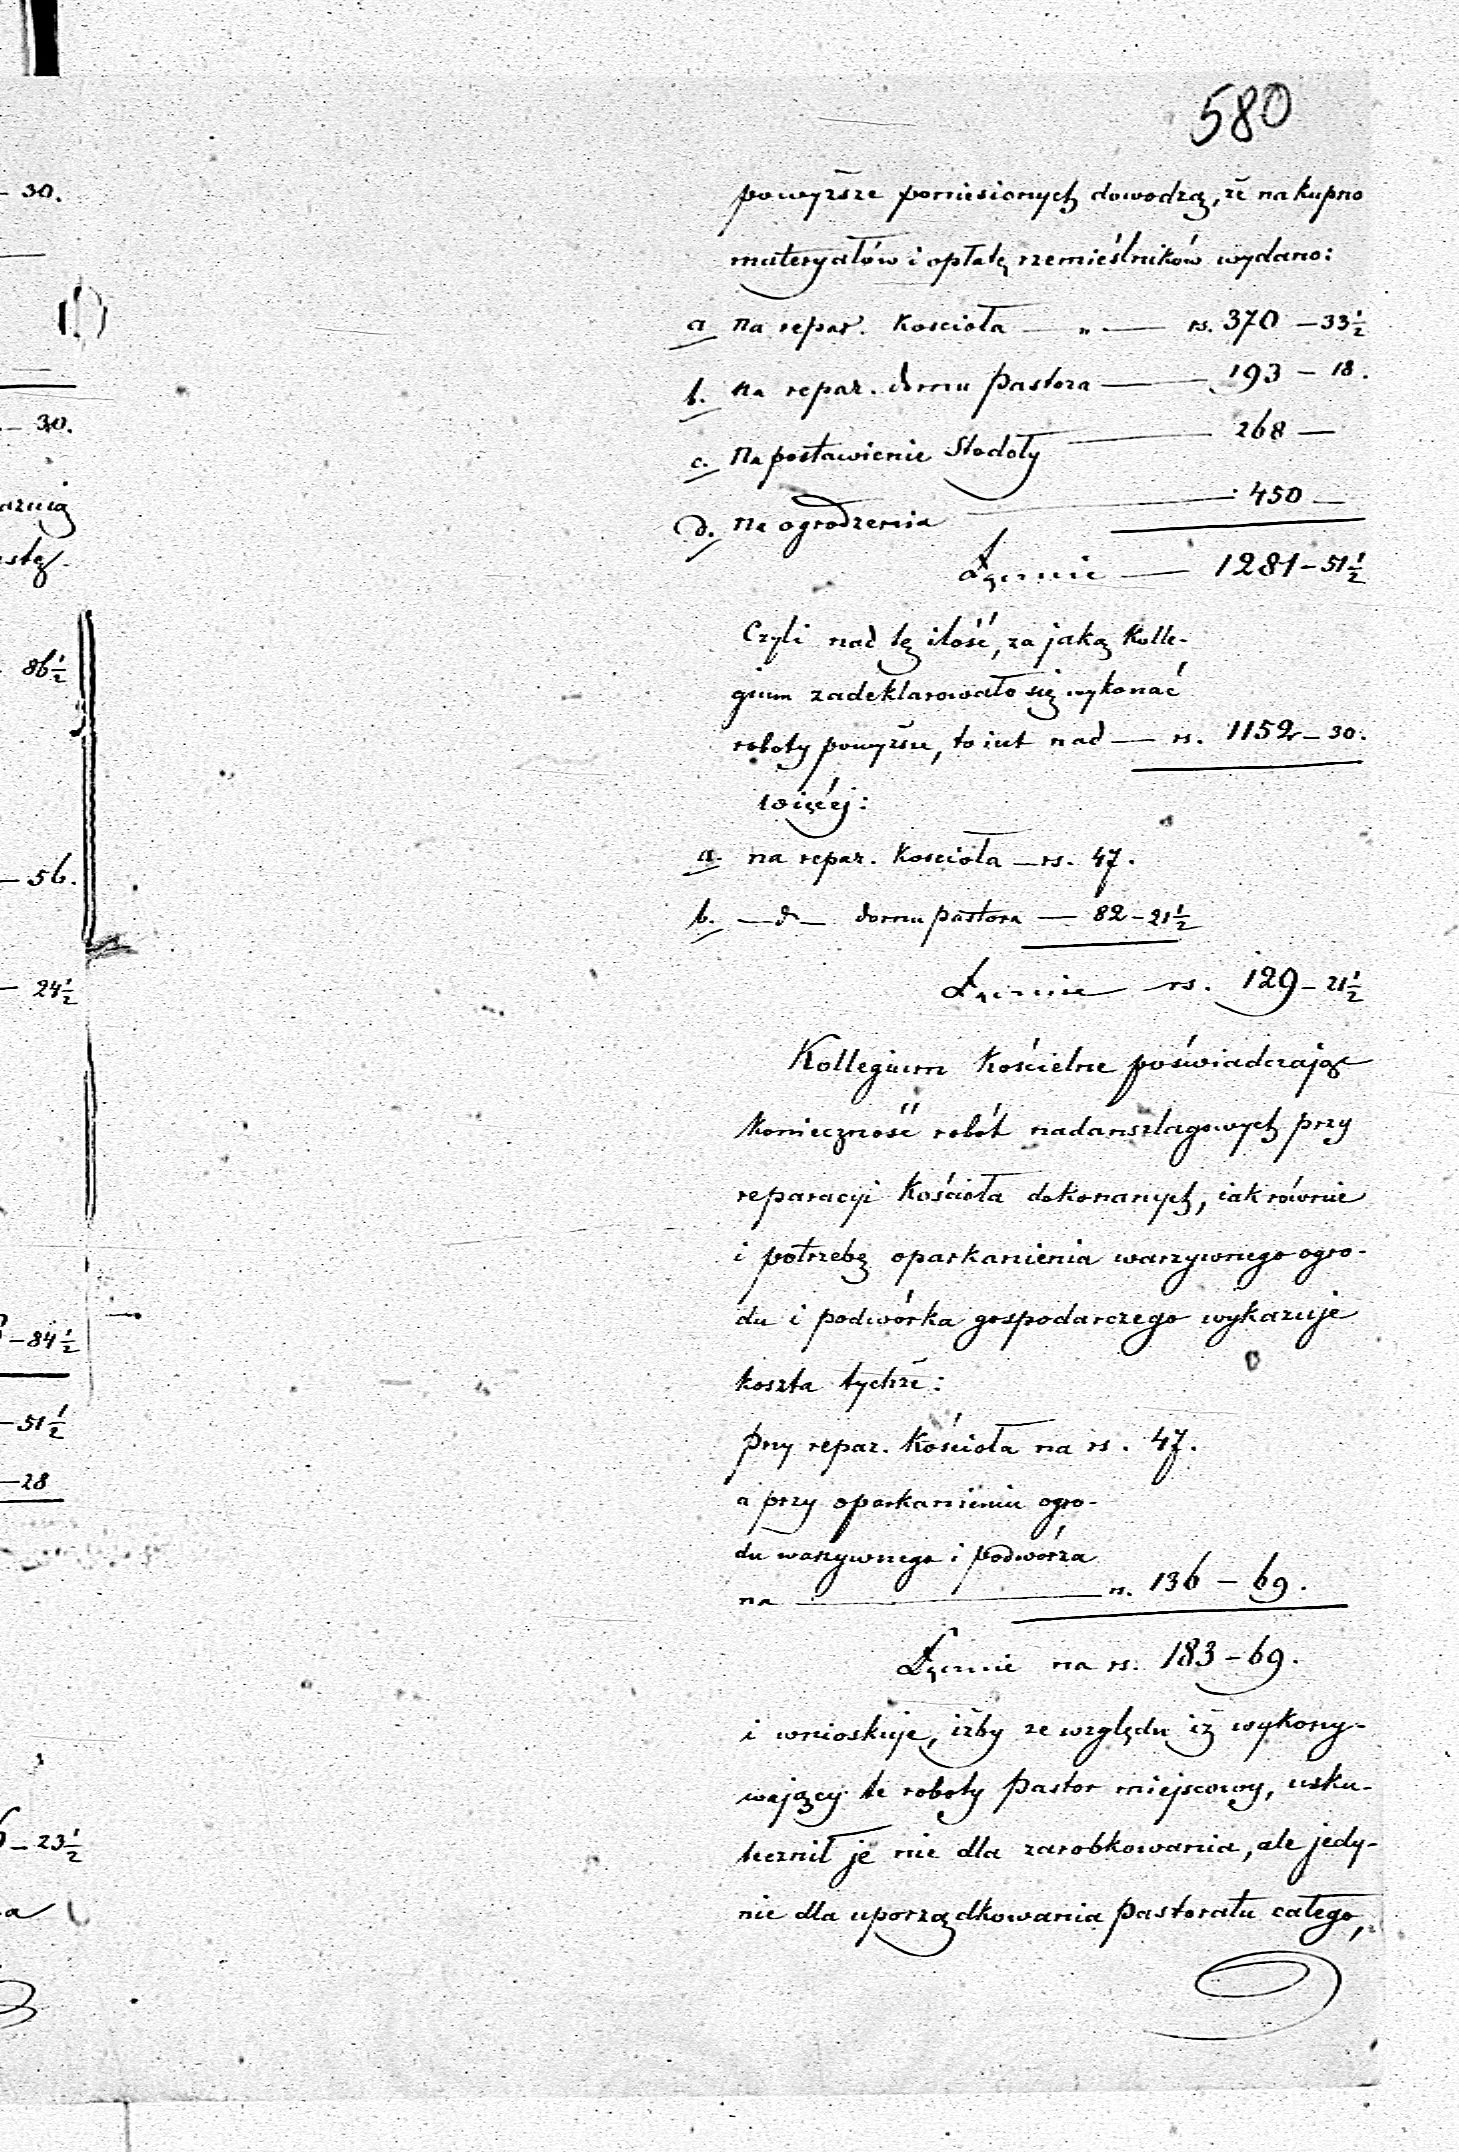 580
powyższe poniesionych dowodzą, że na kupno
materyałów i opłatę rzemieślników wydano:
a na repar. Kościoła — „ — rs. 370 — 33½
b. na repar. domu Pastora — 193 — 18.
c. Na postawienie Stodoły — 268 —
d. Na ogrodzenia — 450 —
Łącznie — 1281 — 51½
Czyli nad tę ilość, za jaką Kolle-
gium zadeklarowało się wykonać
roboty powyższe, to iest nad — rs. 1152 — 30.
więcéj:
a. na repar. Kościoła — rs. 47.
b. — d — domu Pastora — 82 — 21½
Łącznie rs. 129 — 21½
Kollegium Kościelne poświadczając
konieczność robót nadanszlagowych przy
reparacyi Kościoła dokonanych, iak równie
i potrzebę oparkanienia warzywnego ogro-
du i podwórka gospodarczego wykazuje
koszta tychże:
przy repar. Kościoła na rs. 47.
a przy oparkanieniu ogro-
du warzywnego i podwórza
na — rs. 136 — 69.
Łącznie na rs. 183 — 69.
i wnioskuje, iżby ze względu iż wykony-
wający te roboty Pastor miejscowy, usku-
tecznił je nie dla zarobkowania, ale jedy-
nie dla uporządkowania Pastoratu całego,
— 30.
— 30.
86½
— 56.
— 24½
— 84½
— 51½
— 28
— 23½